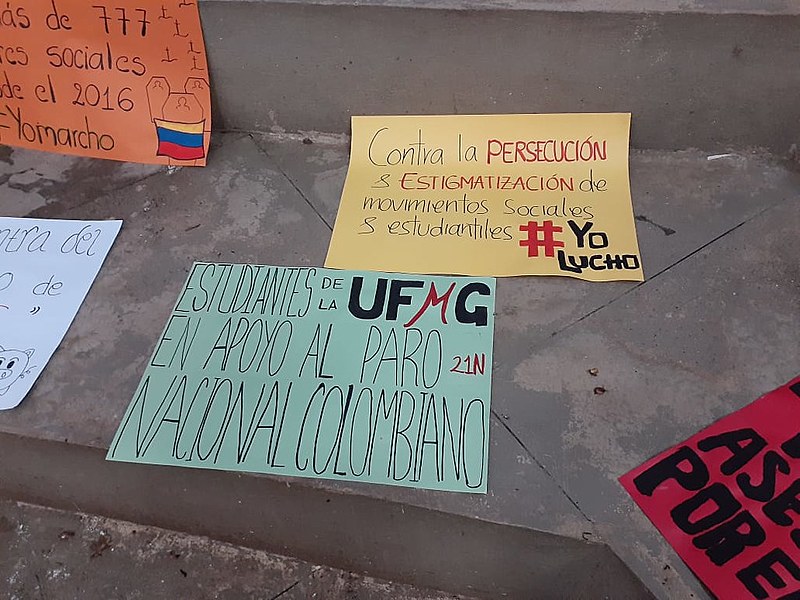 ás de 777
res sociales
de el 2016
#Yomarcho
Contra la PERSECUCIÓN
& ESTIGMATIZACIÓN de
movimientos sociales
& estudiantiles #Yo
Lucho
nera del
de
"
ESTUDIANTES DE LA UFMG
EN APOYO AL PARO 21N
NACIONAL COLOMBIANO
ASE
POR E